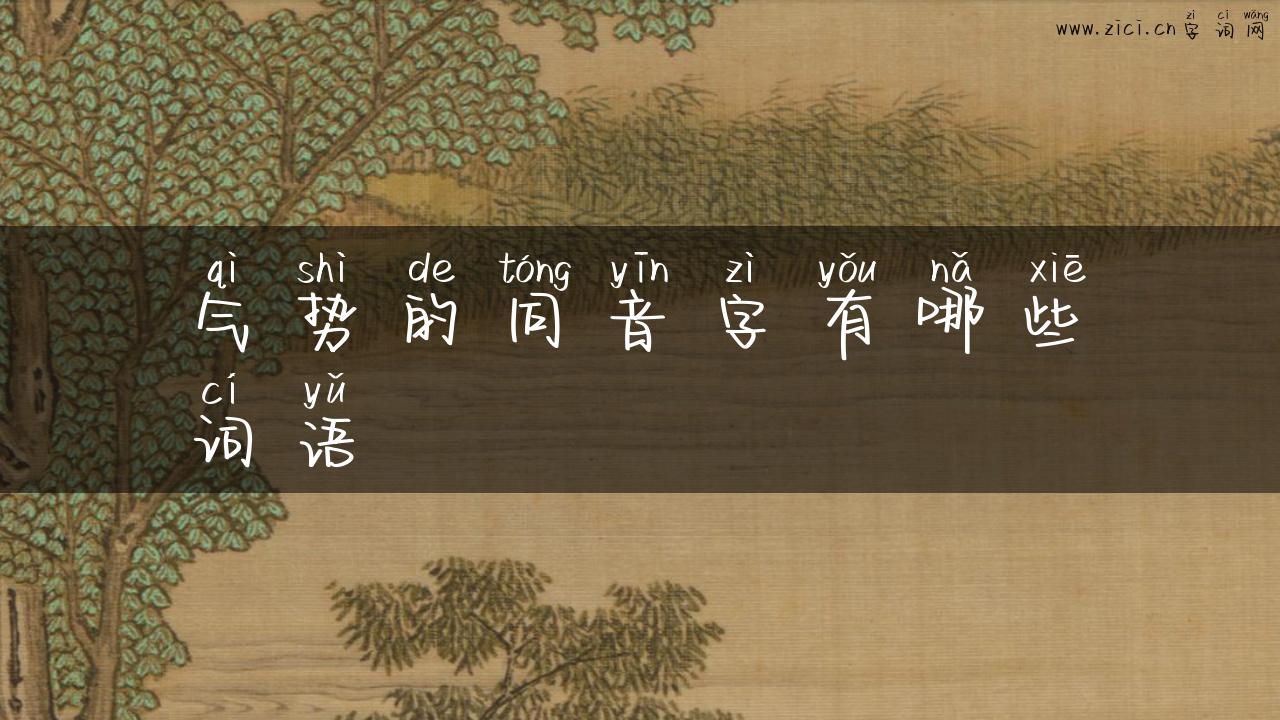 zì cí wǎng
www.zici.cn字词网
qì shì de tóng yīn zì yǒu nǎ xiē
气势的同音字有哪些
cí yǔ
词语